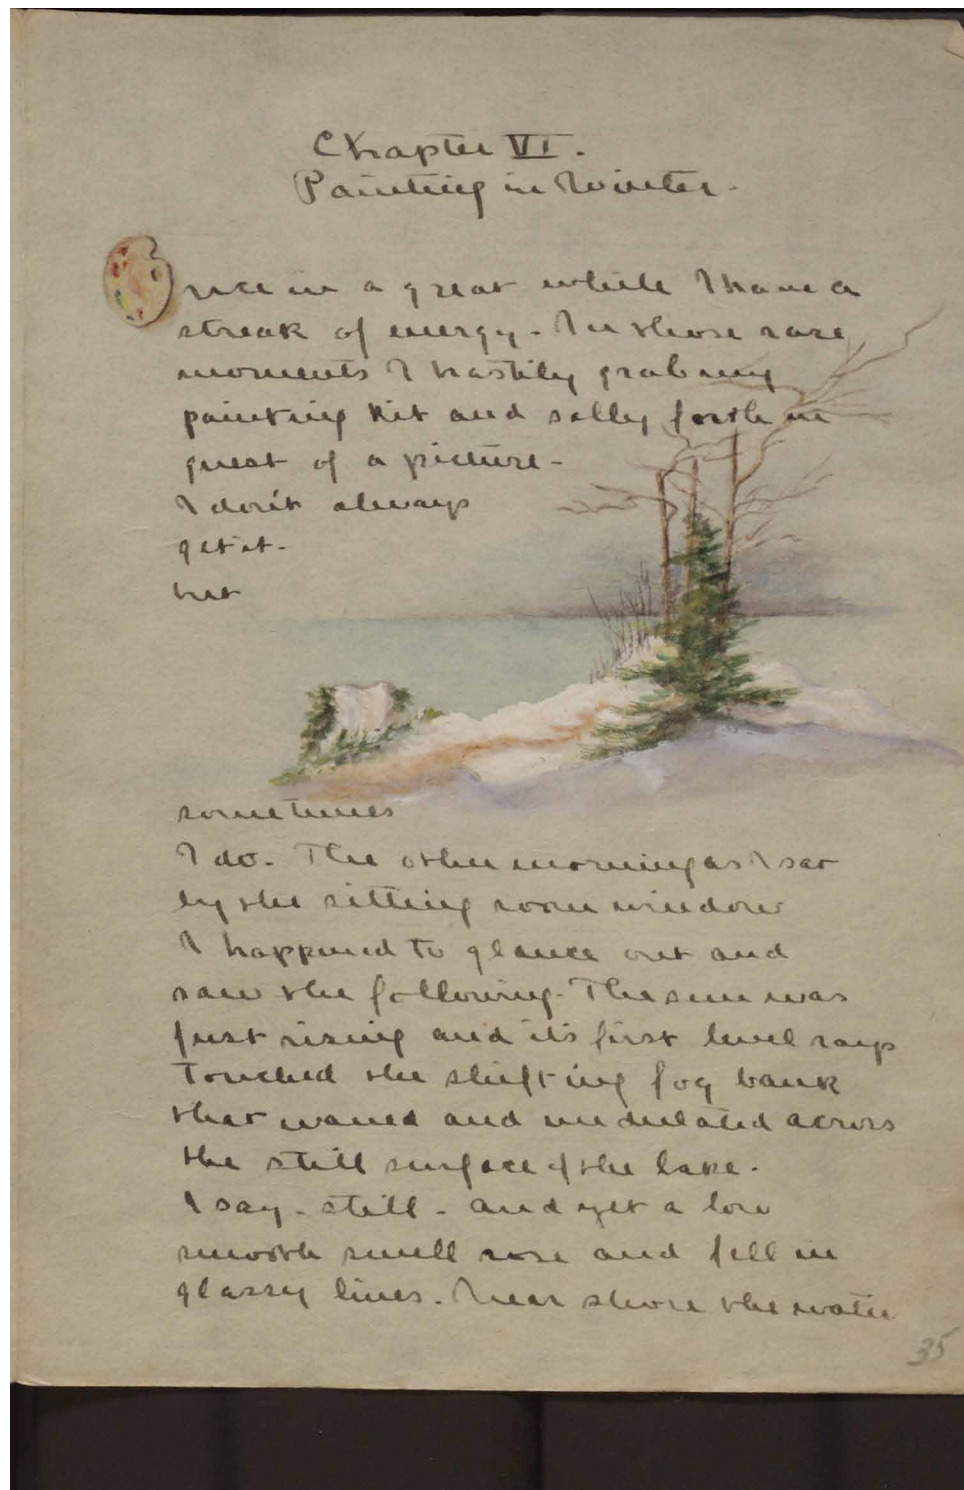 Chapter VI.
Painting in Winter.
Once in a great while I have a
streak of energy. In those rare
moments I hastily grab my
painting kit and sally forth in
quest of a picture.
I don't always
get it.
but
sometimes
I do. The other morning as I sat
by the sitting room window
I happened to glance out and
saw the following. The sun was
just rising and it's first level rays
touched the shifting fog bank
that waved and undulated across
the still surface of the lake.
I say - still - and yet a low
smooth swell rose and fell in
glassy lines. Near shore the water
35